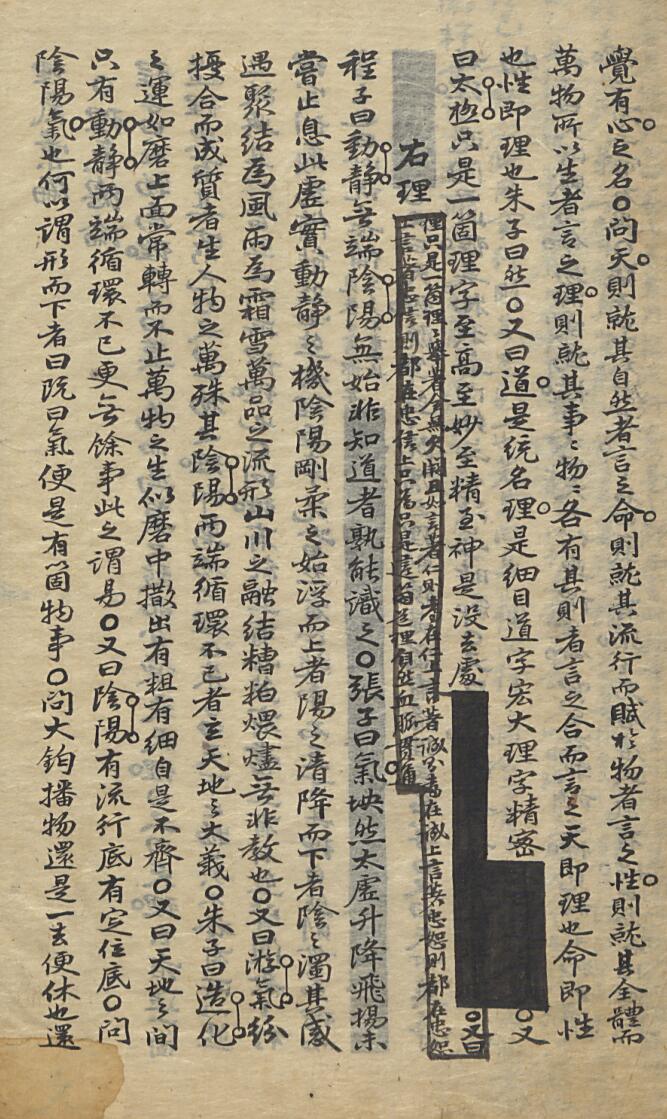 覺有心之名○問天則就其自然者言之命則就其流行而賦於物者言之性則就其全體而
萬物所以生者言之理則就其事〻物〻各有其則者言之合而言之天即理也命即性
也性即理也朱子曰然○又曰道是統名理是細目道字宏大理字精密○又
曰太極只是一箇理字至高至妙至精至神是没去處○又曰
理只是一箇理〻舉著全無欠闕且如言著仁則都在仁上言著誠則都在誠上言著忠恕則都在忠恕
上言著忠信則都在忠信上為只是這箇道理自然血脈貫通
右理
程子曰動靜無端陰陽無始非知道者孰能識之○張子曰氣坱然太虛升降飛揚未
嘗止息此虛實動靜之機陰陽剛柔之始浮而上者陽之清降而下者陰之濁其感
遇聚結為風雨為霜雪萬品之流形山川之融結糟粕煨燼無非教也○又曰游氣紛
擾合而成質者生人物之萬殊其陰陽兩端循環不已者立天地之大義○朱子曰造化
之運如磨上面常轉而不止萬物之生似磨中撒出有粗有細自是不齊○又曰天地之間
只有動靜兩端循環不已更無餘事此之謂易○又曰陰陽有流行底有定位底○問
陰陽氣也何以謂形而下者曰既曰氣便是有箇物事○問大鈞播物還是一去便休也還